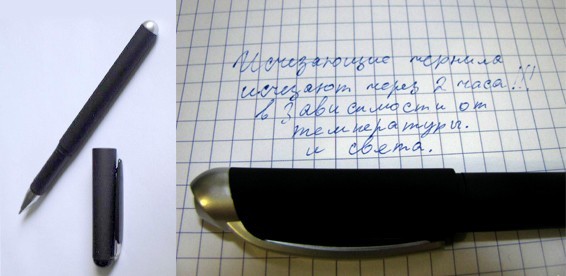 Исчезающие чернила
исчезают через 2 часа!!!
в зависимости от
температуры.
и света.